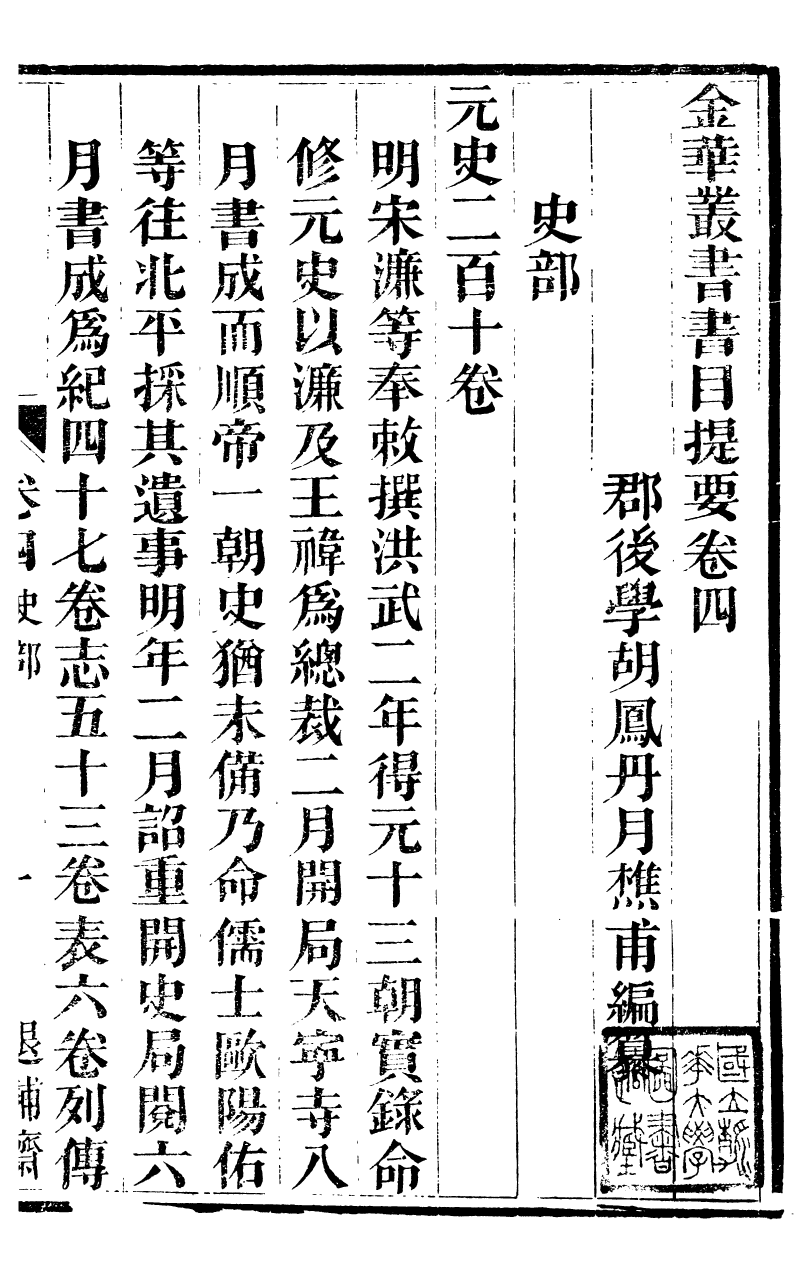 金華叢書書目提要卷四
郡後學胡鳳丹月樵甫編纂
史部
元史二百十卷
明宋濂等奉敕撰洪武二年得元十三朝實錄命
修元史以濂及王禕爲總裁二月開局天寧寺八
月書成而順帝一朝史猶未備乃命儒士歐陽佑
等往北平採其遺事明年二月詔重開史局閱六
月書成爲紀四十七卷志五十三卷表六卷列傳
卷四史部 一 退補齋
國立 大學 圖書 藏